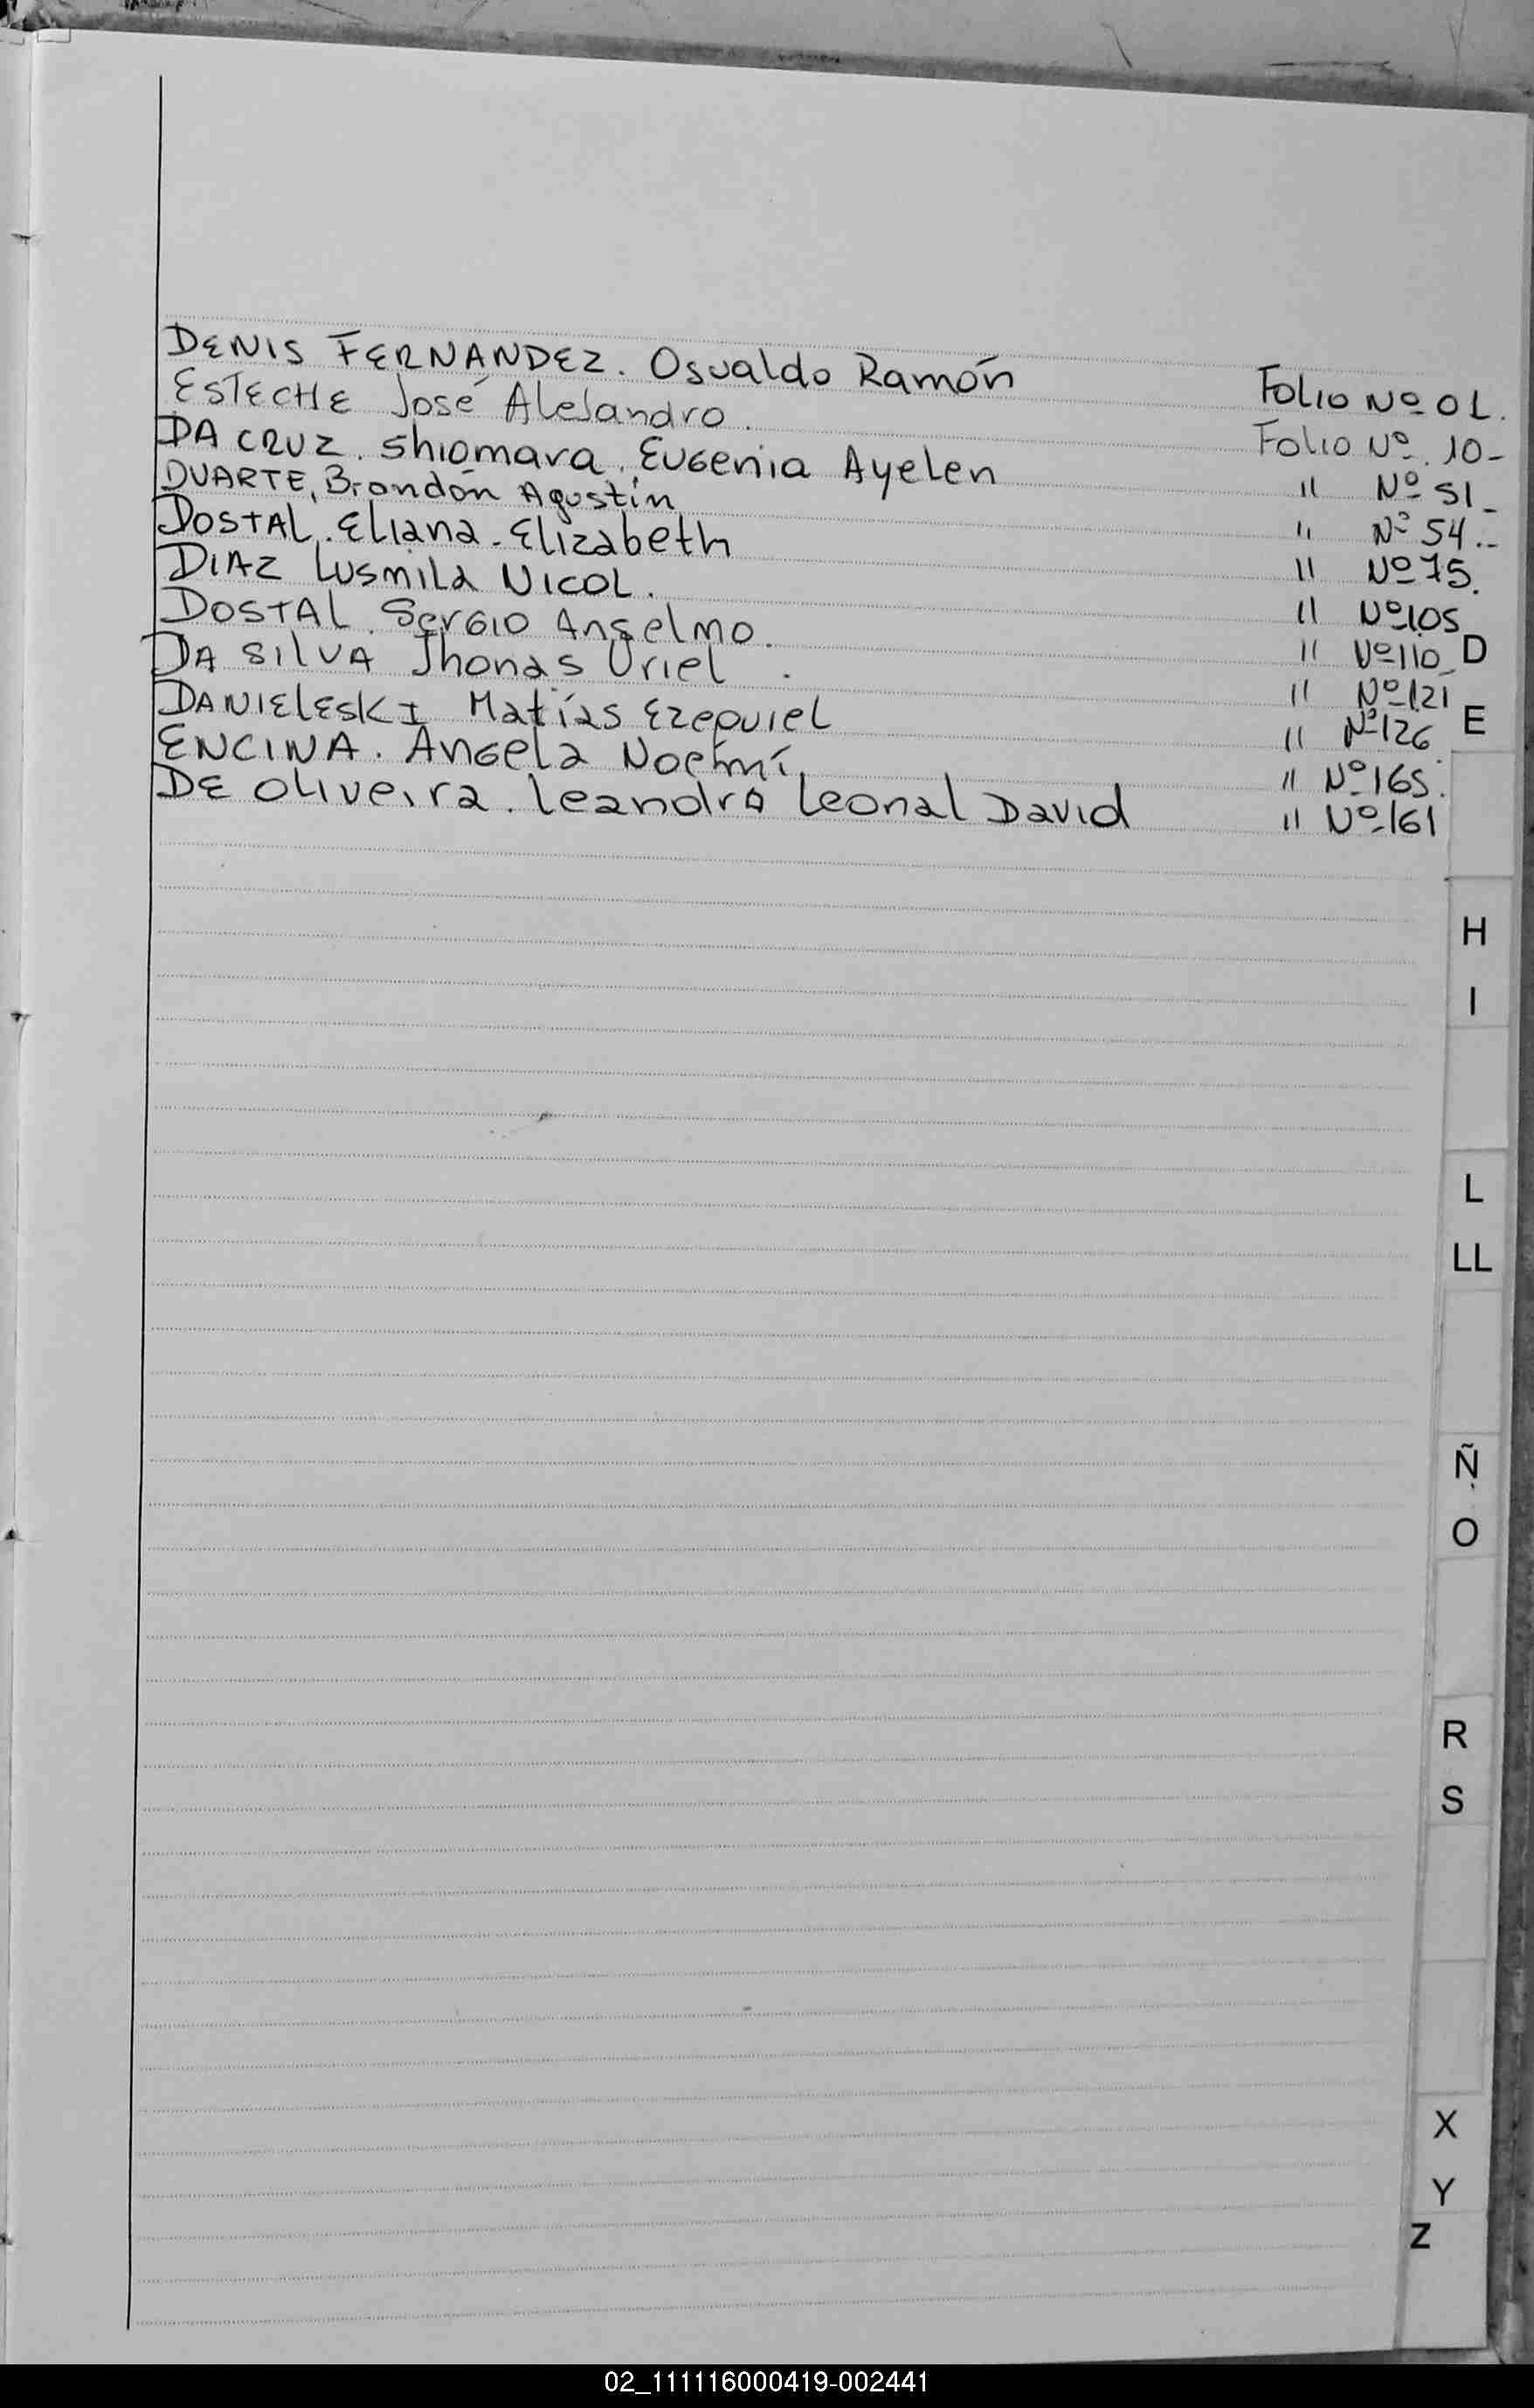 DENIS FERNÁNDEZ. Osvaldo Ramón Folio Nº 01.
ESTECHE José Alejandro. Folio Nº 10-
DA CRUZ. Shiomara. Eugenia Ayelen " Nº 51_
DUARTE, Brandon Agustín " Nº 54.-
DOSTAL. Eliana. Elizabeth " Nº 75.
DIAZ Lusmila NICOL. " Nº 105
DOSTAL. Sergio Anselmo. " Nº 110_
DA SILVA Jhonas Uriel. " Nº 121
DANIELESKI Matías Ezequiel " Nº 126
ENCINA. Angela Noemí. " Nº 165.
DE Oliveira. Leandro Leonal David " Nº 161
D
E
H
I
L
LL
Ñ
O
R
S
X
Y
Z
02_111116000419-002441